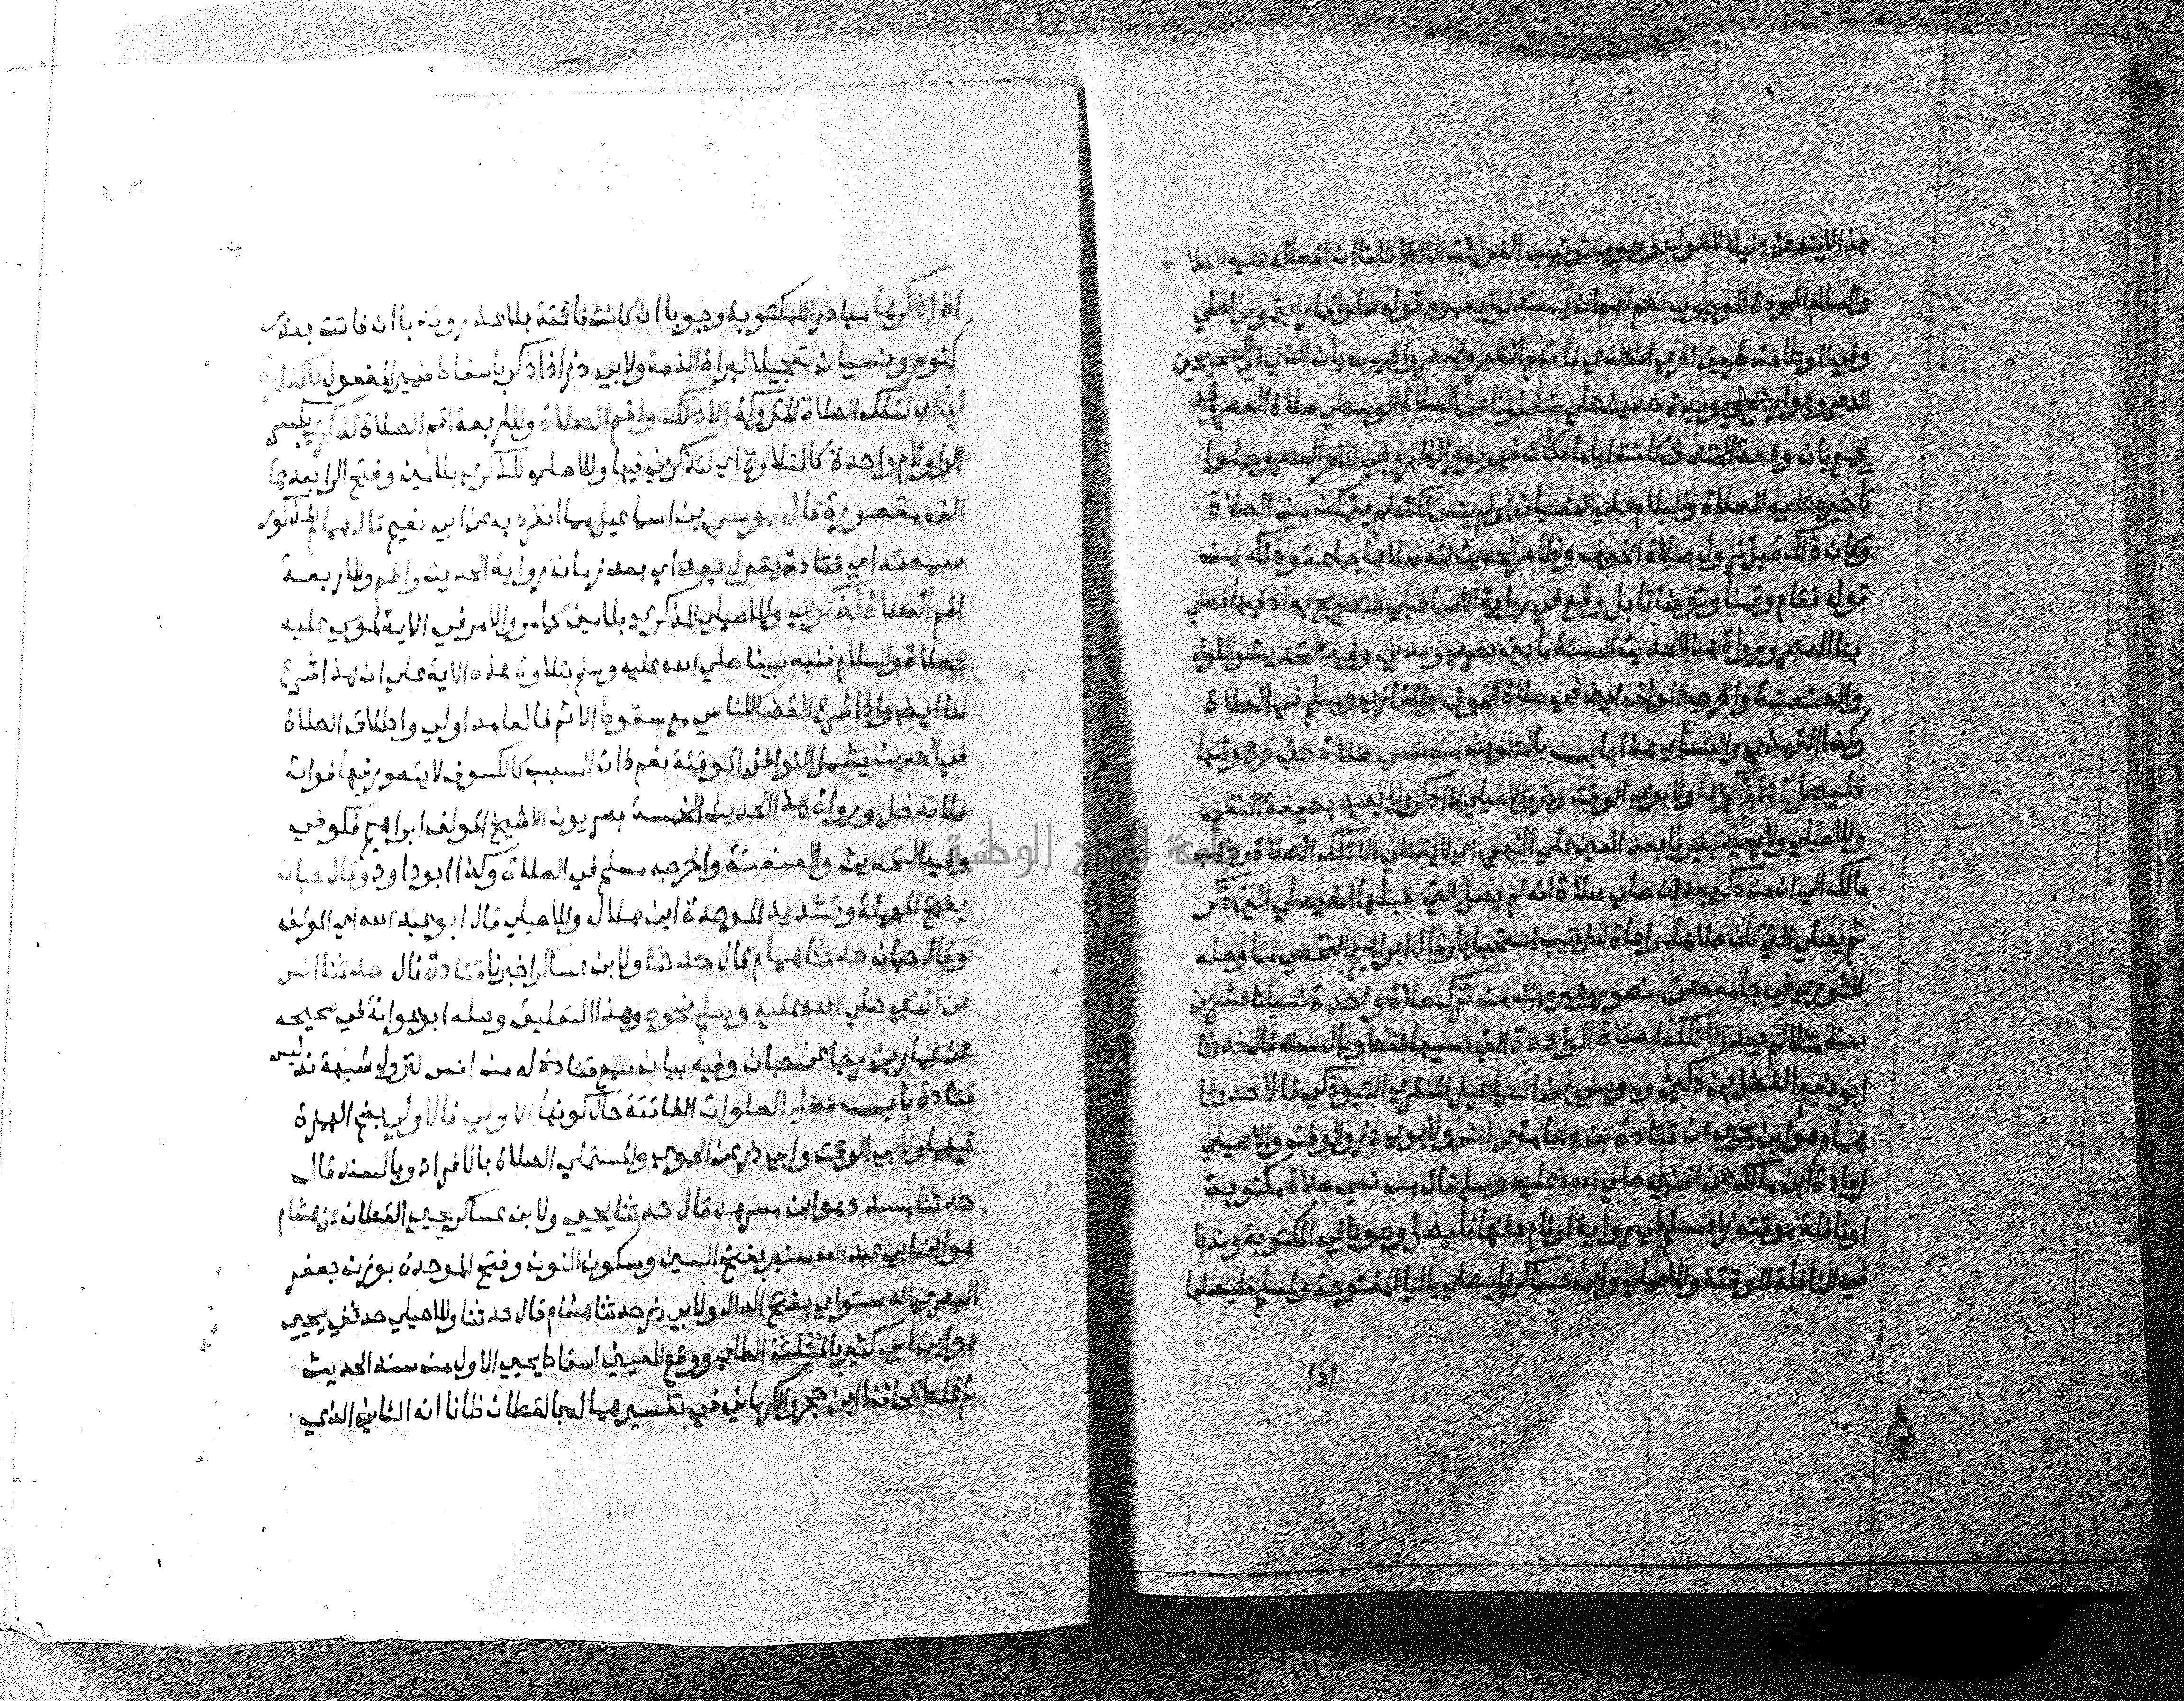 هذا لا ينهض دليلا للقول بوجوب ترتيب الفوائت الا اذا قلنا ان افعاله عليه الصلاة
والسلام المجردة للوجوب نعم لهم ان يستدلوا بعموم قوله صلوا كما رايتموني اصلي
وفي الموطا من طريق اخري ان الذي فاتهم الظهر والعصر واجيب بان الذي في الصحيحين
العصر وهو ارجح ويويده حديث علي شغلونا عن الصلاة الوسطي صلاة العصر وقد
يجمع بان وقعة الخندق كانت اياما فكان في يوم الظهر وفي الاخر العصر وحملوا
تاخيره عليه الصلاة والسلام علي النسيان او لم ينس لكنه لم يتمكن من الصلاة
وكان ذلك قبل نزول صلاة الخوف وظاهر الحديث انه صلاها جماعة وذلك من
قوله فقام وقمنا وتوضانا بل وقع في رواية الاسماعيلي التصريح به اذ فيها فصلي
بنا العصر ورواة هذا الحديث الستة ما بين بصري ومدني وفيه التحديث والقول
والعنعنة واخرجه المولف ايضا في صلاة الخوف والمغازي ومسلم في الصلاة
وكذا الترمذي والنساي هذا باب بالتنوين من نسي صلاة حتي خرج وقتها
فليصل اذا ذكرها ولابوي الوقت وذر والاصيلي اذا ذكر ولا يعيد بصيغة النفي
وللاصيلي ولا يعيد بغير يا بعد العين علي النهي اي لا يقضي الا تلك الصلاة وذهب
مالك الي ان من ذكر بعد ان صلي صلاة انه لم يصل التي قبلها انه يصلي التي ذكر
ثم يصلي التي كان صلاها مراعاة للترتيب استحبابا وقال ابراهيم النخعي مما وصله
الثوري في جامعه عن منصور وغيره عنه من ترك صلاة واحدة نسيانا عشرين
سنة مثلا لم يعد الا تلك الصلاة الواحدة التي نسيها فقط وبالسند قال حدثنا
ابو نعيم الفضل بن دكين وموسي بن اسماعيل المنقري التبوذكي قالا حدثنا
همام هو ابن يحيي عن قتادة بن دعامة عن انس ولابوي ذر والوقت والاصيلي
زيادة ابن مالك عن النبي صلي الله عليه وسلم قال من نسي صلاة مكتوبة
او نافلة موقته زاد مسلم في رواية او نام عنها فليصل وجوبا في المكتوبة وندبا
في النافلة الموقتة وللاصيلي وابن عساكر فليصلي باليا المفتوحة ولمسلم فليصلها
اذا
اذا ذكرها مبادرا للمكتوبة وجوبا ان كانت فائتة بلا عذر وندبا ان فاتت بعذر
كنوم ونسيان تعجيلا لبراة الذمة ولابي ذر اذا ذكر باسقاط ضمير المفعول لا كفارة
لها اي لتلك الصلاة المتروكة الا ذلك واقم الصلاة وللاربعة اقم الصلاة لذكري بكسر
الرا ولام واحدة كالتلاوة اي لتذكرني فيها وللاصلي للذكري بلامين وفتح الرا بعدها
الف مقصورة قال موسي بن اسماعيل مما انفرد به عن ابي نعيم قال همام المذكور
سمعته اي قتادة يقول بعد اي بعد زمان رواية الحديث واقم وللاربعة
اقم الصلاة لذكري وللاصيلي للذكري بلامين كما مر والامر في الاية لموسي عليه
الصلاة والسلام فنبه نبينا صلي الله عليه وسلم بتلاوة هذه الاية علي ان هذا شرع
لنا ايضا واذا شرع القضا للناسي مع سقوط الاثم فالعامد اولي واطلاق الصلاة
في الحديث يشمل النوافل الموقتة نعم ذات السبب كالكسوف لا يتصور فيها فوات
فلا تدخل ورواة هذا الحديث الخمسة بصريون الا شيخ المولف ابراهيم فكوفي
وفيه التحديث والعنعنة واخرجه مسلم في الصلاة وكذا ابو داود وقال حبان
بفتح المهملة وتشديد الموحدة ابن هلال وللاصيلي قال ابو عبد الله اي المولف
وقال حبان حدثنا همام قال حدثنا ولابن عساكر اخبرنا قتادة قال حدثنا انس
عن النبي صلي الله عليه وسلم نحوه وهذا التعليق وصله ابو عوانة في صحيحه
عن عمار بن رجا عن حبان وفيه بيان سمع قتادة له من انس لتزول شبهة تدليس
قتادة باب قضا الصلوات الفائتة حال كونها الاولي فالاولي بضم الهمزة
فيهما ولابي الوقت وابي ذر عن الحموي والمستملي الصلاة بالافراد وبالسند قال
حدثنا مسدد هو ابن مسرهد قال حدثنا يحيي ولابن عساكر يحيي القطان عن هشام
هو ابن ابي عبد الله سنبر بفتح السين وسكون النون وفتح الموحدة بوزن جعفر
البصري الدستواي بفتح الدال ولابي ذر حدثنا هشام قال حدثنا وللاصيلي حدثني يحيي
هو ابن ابي كثير بالمثلثة الطاي ووقع للعيني اسقاط يحيي الاول من سند الحديث
ثم غلط الحافظ ابن حجر والكرماني في تفسيرهما له بالقطان ظانا انه الثاني الذي
جامعة النجاح الوطنية